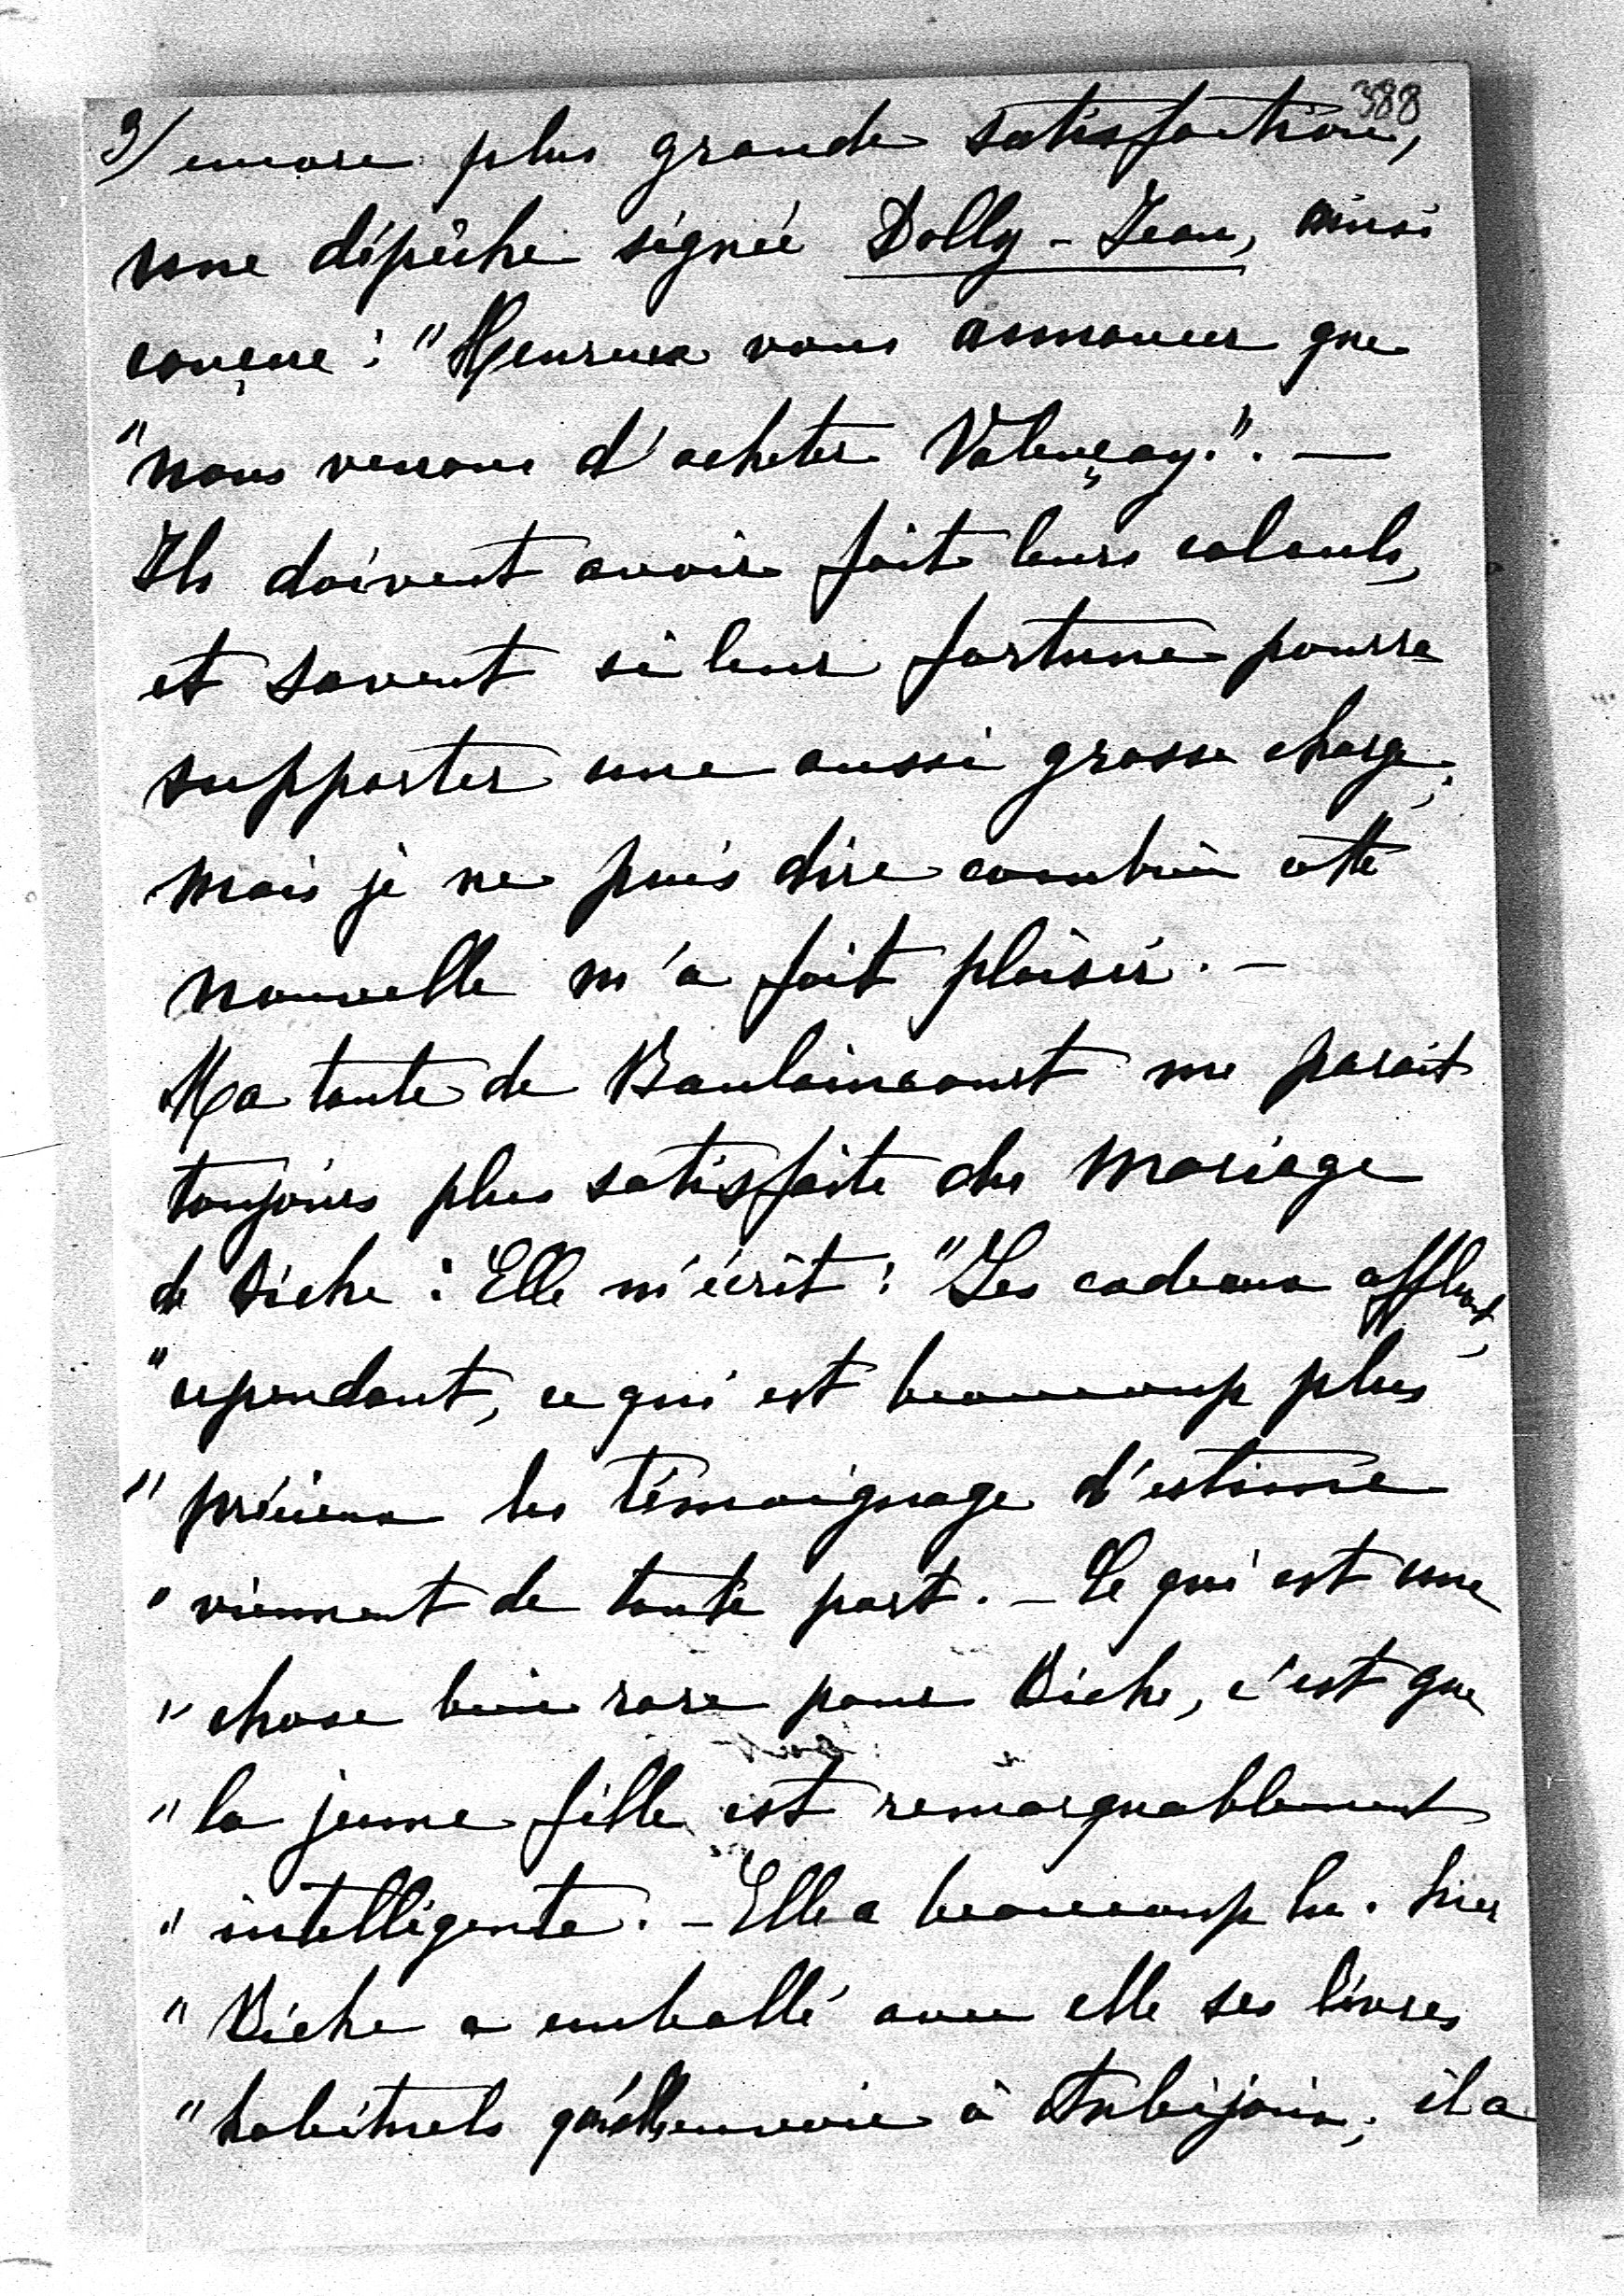 388
3/ encore plus grande satisfaction,
une dépêche signée Dolly - Jean, ainsi
conçue : "Heureux vous annoncer que
"nous venons d'acheter Valençay." . —
Ils doivent avoir fait leurs calculs,
et savent si leur fortune pourra
supporter une aussi grosse charge;
mais je ne puis dire combien cette
nouvelle m'a fait plaisir. —
Ma tante de Baulaincourt me parait
toujours plus satisfaite du mariage
de Biche : Elle m'écrit : "Les cadeaux affluent,
"cependant, ce qui est beaucoup plus
"précieux les témoignage d'estime
"viennent de toute part. — Ce qui est une
"chose bien rare pour Biche, c'est que
"la jeune fille est remarquablement
"intelligente. — Elle a beaucoup lu. hier
"Biche a emballé avec elle ses livres
"habituels qu'elle envoie à Aubijoux; il a